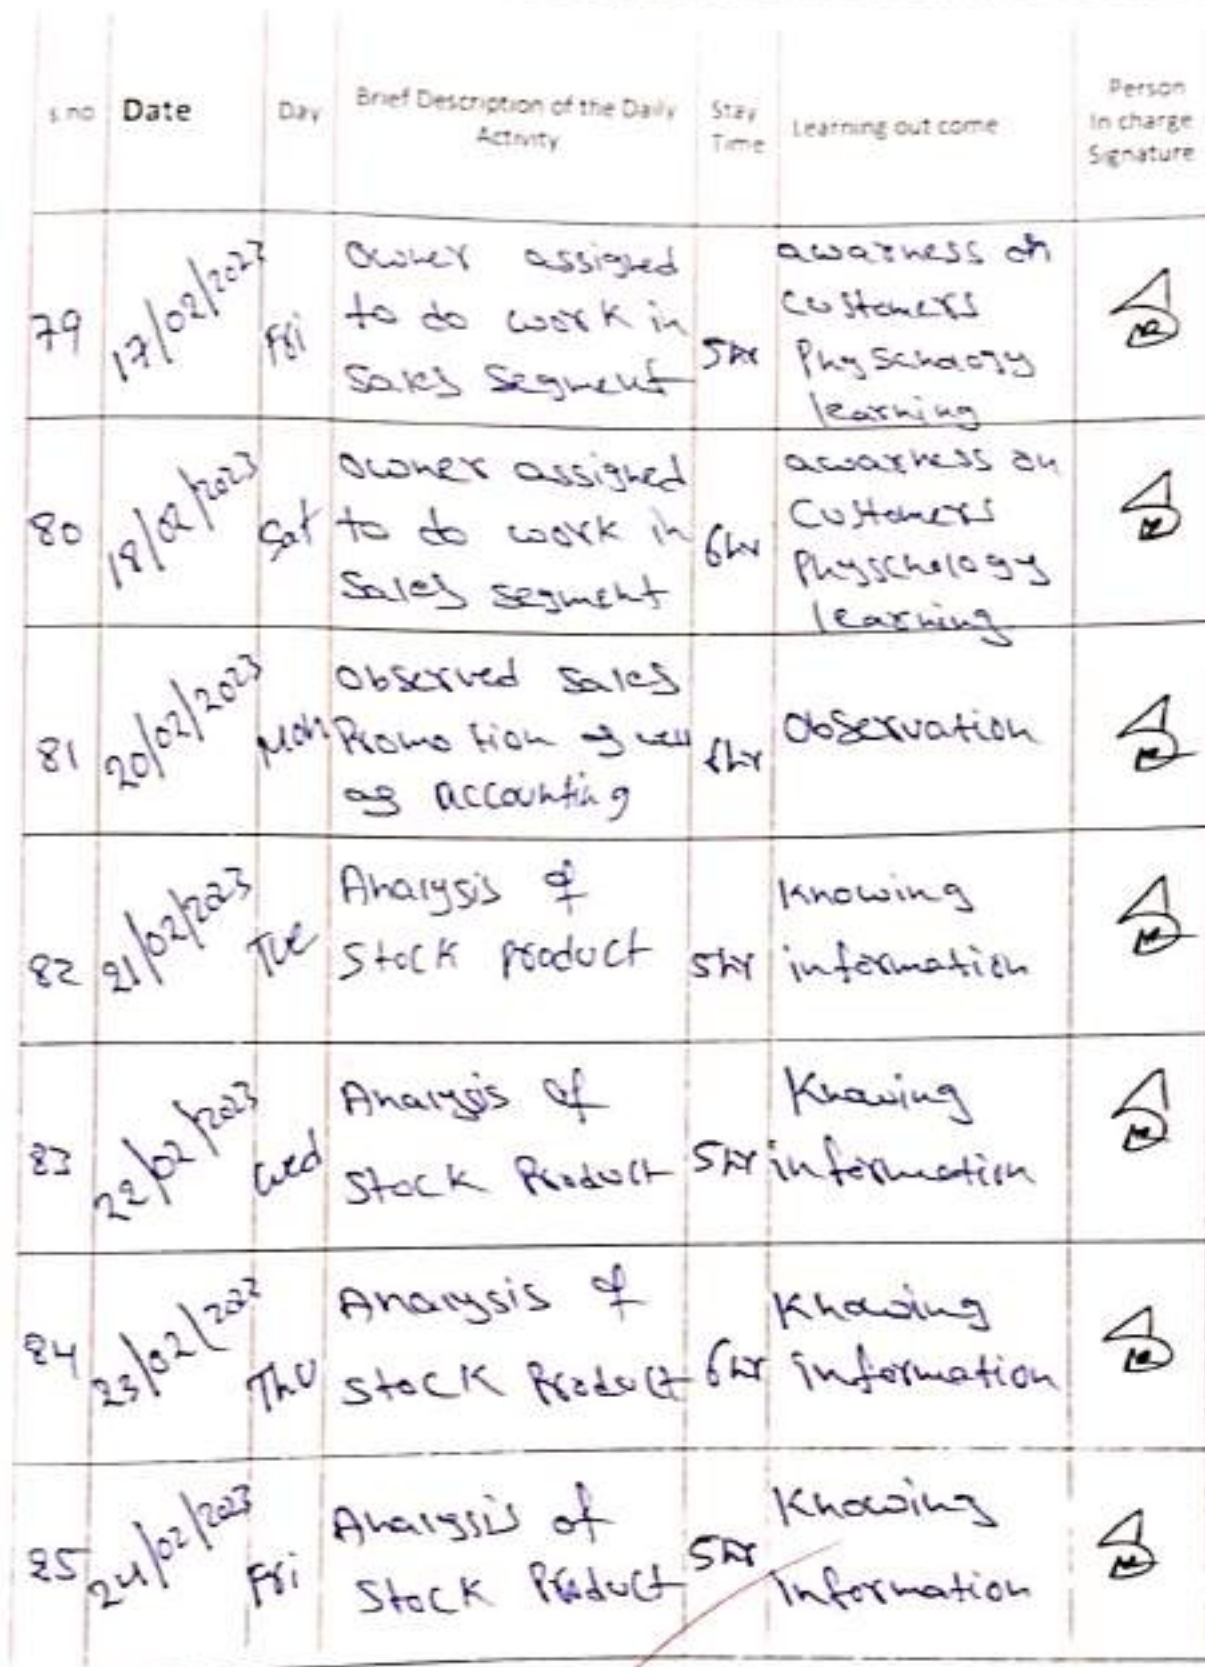 s.no Date Day Brief Description of the Daily Activity Stay Time Learning out come Person In charge Signature
79 17/02/2023 Fri Owner assigned to do work in Sales Segment 5hr awarness on Customers Physchology learning
80 18/02/2023 Sat Owner assigned to do work in Sales segment 6hr awarness on Customers Physchology learning
81 20/02/2023 Mon Observed Sales Promotion as well as accounting 6hr Observation
82 21/02/2023 Tue Analysis of Stock product 5hr Knowing information
83 22/02/2023 Wed Analysis of Stock Product 5hr Knowing information
84 23/02/2023 Thu Analysis of Stock Product 6hr Knowing information
85 24/02/2023 Fri Analysis of Stock Product 5hr Knowing Information